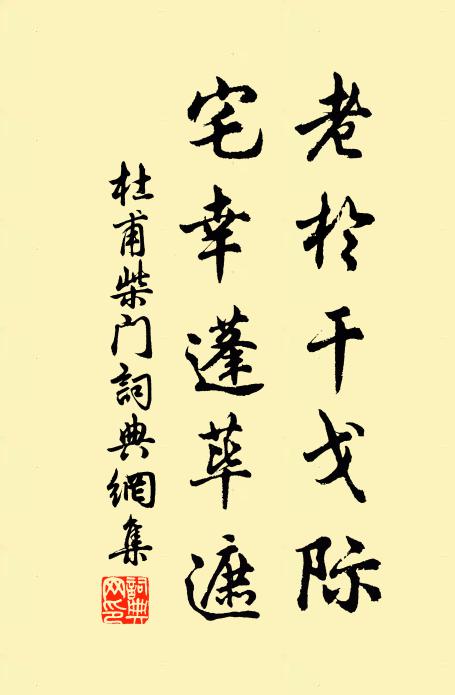 老於干戈际
宅幸蓬荜遮
杜甫柴门詞典網集
詞典网印